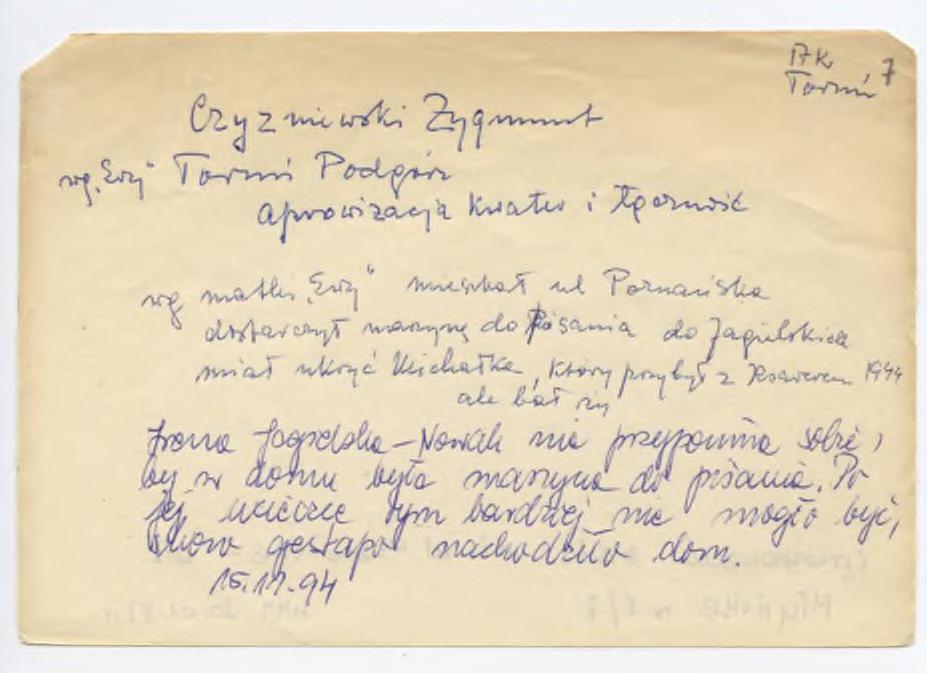 AK 7
Toruń
Czyzniewski Zygmunt
wg „Ewy" Toruń Podgórz
aprowizacja kwater i łączność
wg matki „Ewy" mieszkał ul Poznańska
dostarczył maszynę do pisania do Jagielskich
miał ukryć Michałka, który przybył z 1944
ale bał się
Irena Jagielska-Nowak nie przypomina sobie,
by w domu była maszyna do pisania. Po
jej ucieczce tym bardziej nie mogło być,
skoro gestapo nachodziło dom.
15.11.94